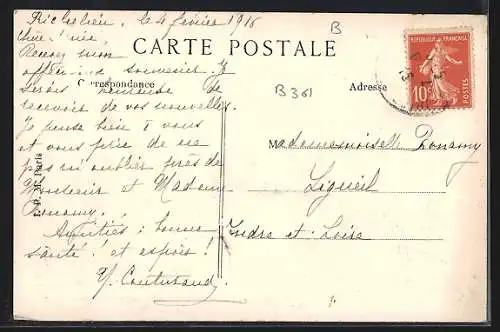 Richelieu, le 4 février 1916
B
CARTE POSTALE
Correspondance
Adresse
RÉPUBLIQUE FRANÇAISE
10c
POSTES
B 361
Chère amie,
Recevez mon
affectueux souvenir. Je
serais heureuse de
recevoir de vos nouvelles.
Je pense bien à vous
et vous prie de ne
pas m'oublier près de
Monsieur et Madame
Bonamy.
Amitiés : bonne
santé ! et espoir !
Y.
Mademoiselle Bonamy
Ligueil
Indre-et-Loire
Paris